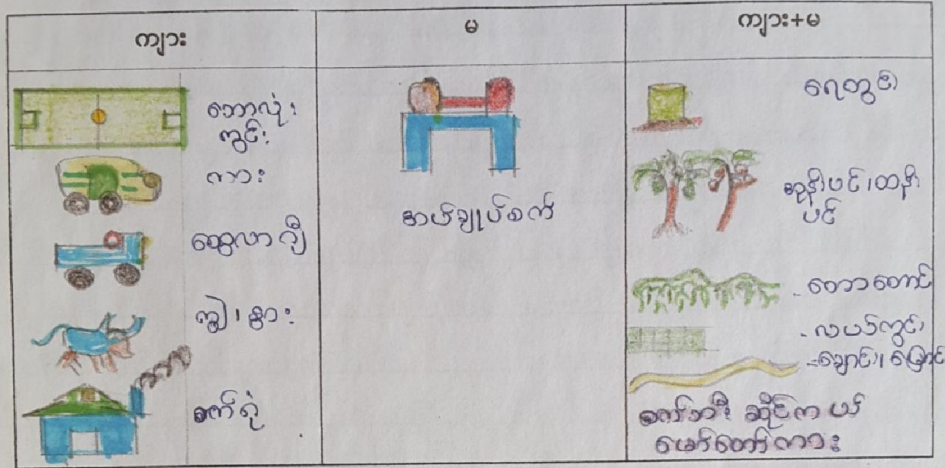 ကျား
မ
ကျား+မ
ဘောလုံး
ကွင်း
ကား
ထွေလာဂျီ
ကျွဲ၊ နွား
စက်ရုံ
အပ်ချုပ်စက်
ရေတွင်း
အုန်းပင်၊ ထန်း
ပင်
- တောတောင်
- လယ်ကွင်း
- ချောင်း၊ မြောင်း
စက်ဘီး ဆိုင်ကယ်
မော်တော်ကား